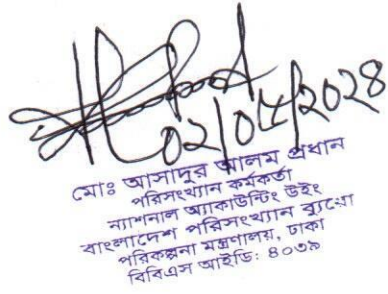 ০২/০৫/২০২৪
মোঃ আসাদুর আলম প্রধান
পরিসংখ্যান কর্মকর্তা
ন্যাশনাল অ্যাকাউন্টিং উইং
বাংলাদেশ পরিসংখ্যান ব্যুরো
পরিকল্পনা মন্ত্রণালয়, ঢাকা
বিবিএস আইডি: ৪০৩৯